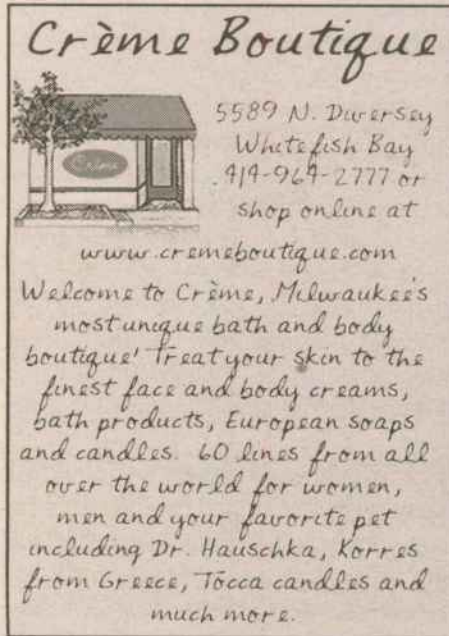 Crème Boutique
5589 N. Diversey
Whitefish Bay
414-964-2777 or
shop online at
Crème
www.cremeboutique.com
Welcome to Crème, Milwaukee's
most unique bath and body
boutique! Treat your skin to the
finest face and body creams,
bath products, European soaps
and candles. 60 lines from all
over the world for women,
men and your favorite pet
including Dr. Hauschka, Korres
from Greece, Tocca candles and
much more.